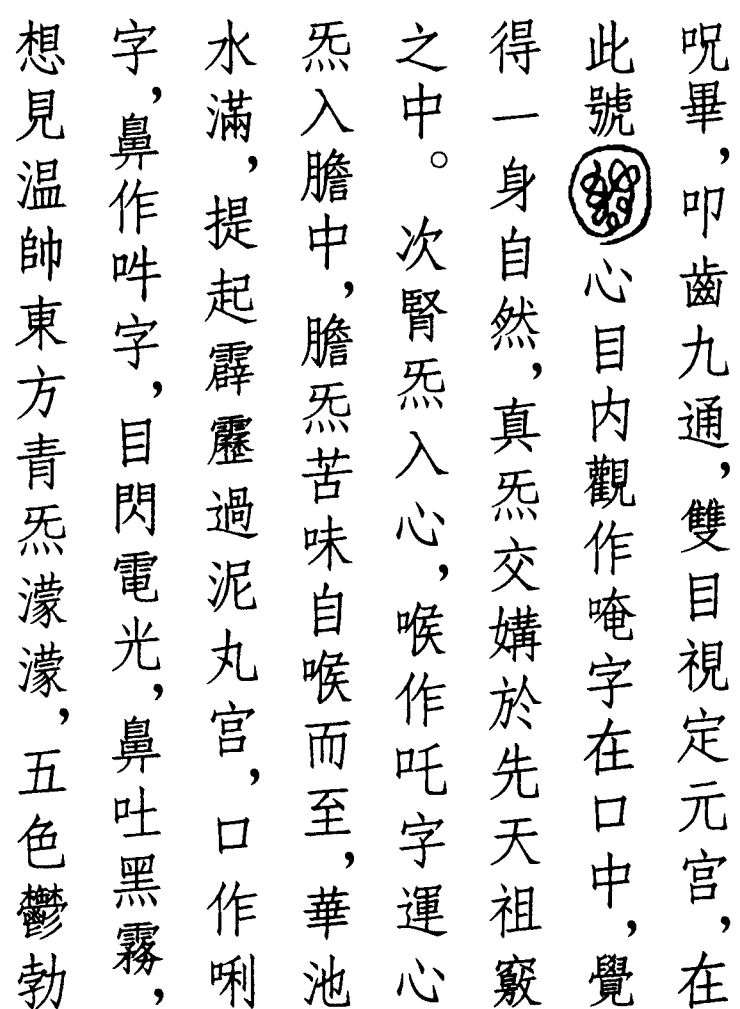 呪畢，叩齒九通，雙目視定元宮，在
此號心目內觀作唵字在口中，覺
得一身自然，真炁交媾於先天祖竅
之中。次腎炁入心，喉作吒字運心
炁入膽中，膽炁苦味自喉而至，華池
水滿，提起霹靂過泥丸宮，口作唎
字，鼻作吽字，目閃電光，鼻吐黑霧，
想見温帥東方青炁濛濛，五色鬱勃